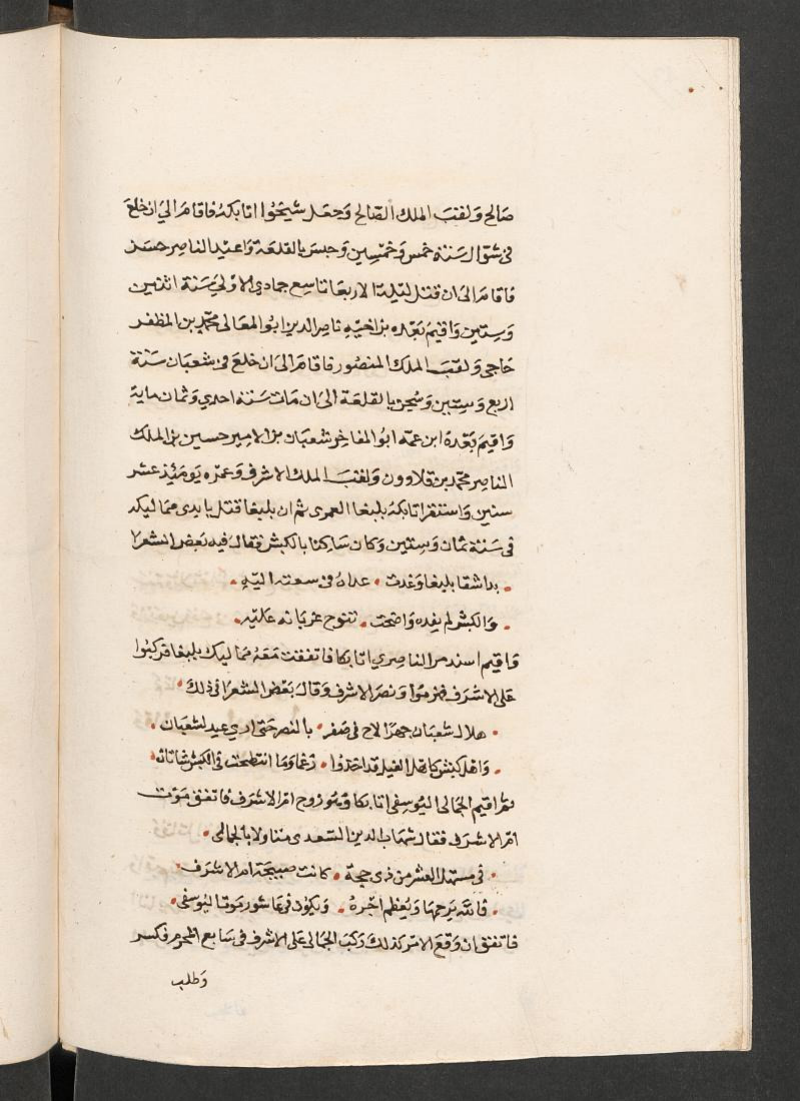 صالح ولقب الملك الصالح وجعل شيخوا اتابكه فاقام الي ان خلع
في شوال سنة خمس وخمسين وحبس بالقلعة واعيد الناصر حسن
فاقام الى ان قتل ليلة الاربعا تاسع جمادي الاولي سنة اثنين
وستين واقيم بعده بن اخيه ناصر الدين ابو المعالى محمد بن المظفر
حاجي ولقب الملك المنصور فاقام الى ان خلع في شعبان سنة
اربع وستين وسجن بالقلعة الى ان مات سنة احدي وثمان ماية
واقيم بعده ابن عمه ابو المفاخر شعبان بن الامير حسين بن الملك
الناصر محمد بن قلاوون ولقب الملك الاشرف وعمره يومئذ عشر
سنين واستقر اتابكه يلبغا العمري ثم ان يلبغا قتل بايدي مماليكه
في سنة ثمان وستين وكان ساكنا بالكبش فقال فيه بعض الشعرا
بدا شقا يلبغا وعدت عداه في سعته اليه
والكبش لم يفده واضحت تنوح غربانه عليه
واقيم اسندمر الناصري اتابكا فاتفقت معه مماليك يلبغا فركبوا
على الاشرف فهزموا ونصر الاشرف وقال بعض الشعرا في ذلك
هلال شعبان جهرا لاح في صفر بالنصر حتى اري عيد لشعبان
واهل كبش كاهل الفيل قد اخذوا رغما وما انتطحت في الكبش شاتان
ثم اقيم الجمالى اليوسفى اتابكا وهو زوج ام الاشرف فاتفق موت
ام الاشرف فقال شهاب الدين السعدى متناولا بالجمالى
في مستهل العشر من ذي حجة كانت صبيحة ام الاشرف
فالله يرحمها ويعظم اجره ويكون في عاشور موت اليوسفى
فاتفق ان وقع الامر كذلك وركب الجمالى على الاشرف في سابع المحرم فكسر
وطلب